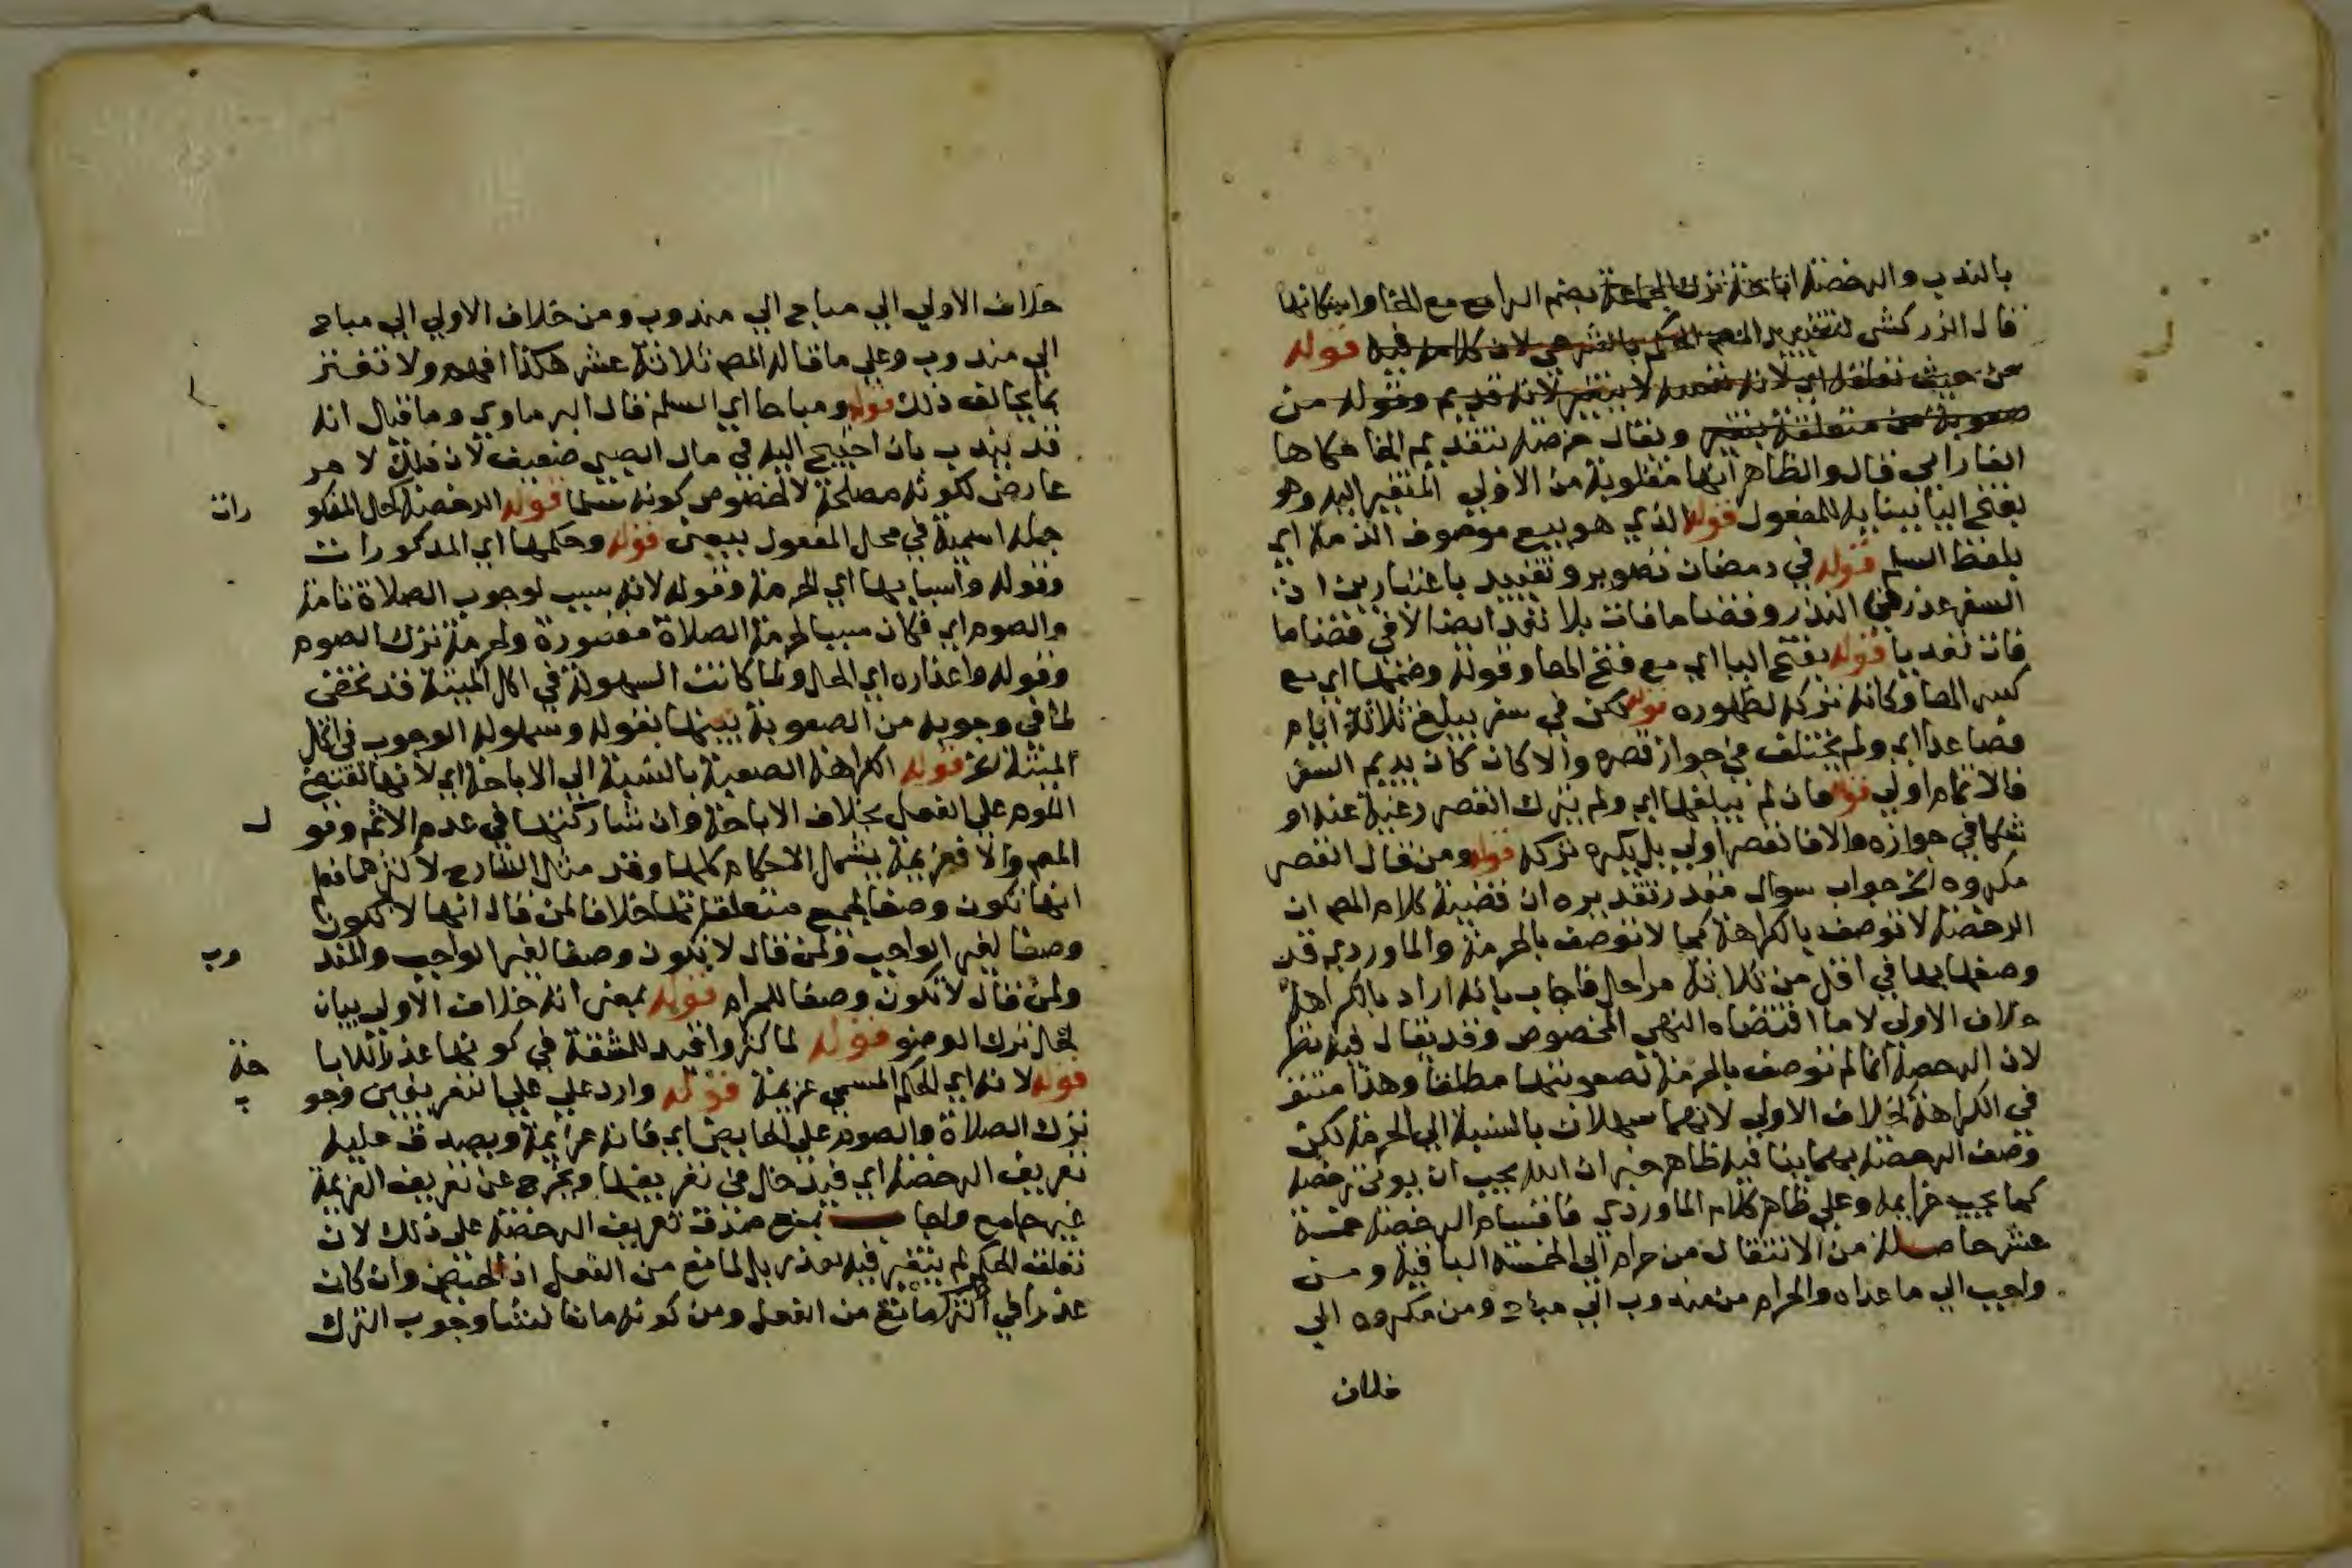 بالندب والرخصة اباحة ترك الجماعة بضم الراء مع مع الخا واسكانها
قال الزركشي لتغيير المص الحكم بالشرعي لان كلامه فيه قوله
من حيث تعلقه اي لانه نفسه لا يتغير لانه قديم وقوله من
صعوبة من متعلقة بتغير ويقال خرصة بتقديم الخا حكاها
الفارابي قال والظاهر انها مقلوبة من الاولي المتغير اليه وهو
بفتح اليا ببنايه للمفعول قوله الذي هو بيع موصوف الذمة اي
بلفظ السلم قوله في رمضان تصوير وتقييد باعتبارين ان
السفر عذر في النذر وقضا ما فات بلا تعد ايضا لا في قضا ما
فات تعديا قوله بفتح اليا اي مع فتح الصا وقوله وضمها اي مع
كسر الصا وكانه تركه لظهوره قوله لكن في سفر يبلغ ثلاثة ايام
فصاعدا اي ولم يختلف في جواز قصره والا كان كان يديم السفر
فالاتمام اولي قوله فان لم يبلغها اي ولم يترك القصر رغبة عنه او
شكا في جوازه والا فالقصر اولي بل يكره تركه قوله ومن قال القصر
مكروه الخ جواب سوال مقدر تقديره ان قضية كلام المص ان
الرخصة لا توصف بالكراهة كما لا توصف بالحرمة والماوردي قد
وصفها بها في اقل من ثلاثة مراحل فاجاب بانه اراد بالكراهة
خلاف الاولي لا ما اقتضاه النهي المخصوص وقد يقال فيه نظر
لان الرخصة انما لم توصف بالحرمة لصعوبتها مطلقا وهذا منتف
في الكراهة كخلاف الاولي لانهما سهلان بالنسبة الي الحرمة لكن
وصف الرخصة بهما ينافيه ظاهر خبر ان الله يحب ان يوتي رخصه
كما يحب عزايمه وعلي ظاهر كلام الماوردي فاقسام الرخصة خمسة
عشر حاصلة من الانتقال من حرام الي الخمسة الباقية ومن
واجب الي ما عداه والحرام من مندوب الي مباح ومن مكروه الي
خلاف
خلاف الاولي الي مباح الي مندوب ومن خلاف الاولي الي مباح
الي مندوب وعلي ما قاله المص ثلاثة عشر هكذا افهم ولا تغتر
بما يخالف ذلك قوله ومباحا اي السلم قال البرماوي وما قيل انه
قد يندب بان احتيج اليه في مال الصبي ضعيف لان ذلك لامر
عارض لكونه مصلحة لا لخصوص كونه سلما قوله الرخصة كحل المذكو رات
جملة اسمية في محل المفعول بيعني قوله وحكمها اي المذكورات
وقوله واسبابها اي الحرمة وقوله لانه سبب لوجوب الصلاة تامة
والصوم اي فكان سببا لحرمة الصلاة مقصورة ولحرمة ترك الصوم
وقوله واعذاره اي الحل ولما كانت السهولة في اكل الميتة قد تخفي
لما في وجوبه من الصعوبة بينها بقوله وسهولة الوجوب في اكل
الميتة الخ قوله الكراهة الصعبة بالنسبة الي الاباحة اي لانها تقتضي
اللوم علي الفعل بخلاف الاباحة وان شاركتها في عدم الاثم وقو ل
المص والا فعزيمة يشمل الاحكام كلها وقد مثل الشارح لاكثرها فعلم
انها تكون وصفا لجميع متعلقاتها خلافا لمن قال انها لا تكون
وصفا لغير الواجب ولمن قال لا تكون وصفا لغير الواجب والمند وب
ولمن قال لا تكون وصفا للحرام قوله بمعني انه خلاف الاولي بيان
لحال ترك الوضو قوله لما كثروا قيد للمشقة في كونها عذرا للابا حة
قوله لانه اي الحكم المسمي عزيمة قوله وارد علي علي التعريفين وجو ب
ترك الصلاة والصوم علي الحايض اي فانه عزيمة ويصدق عليه
تعريف الرخصة اي فيدخل في تعريفها ويخرج عن تعريف العزيمة
غير جامع واجاب بمنع صدق تعريف الرخصة علي ذلك لان
تعلق الحكم لم يتغير فيه لعذر بل لمانع من الفعل اذ الحيض وان كان
عذرا في الترك مانع من الفعل ومن كونه مانعا لنشا وجوب الترك